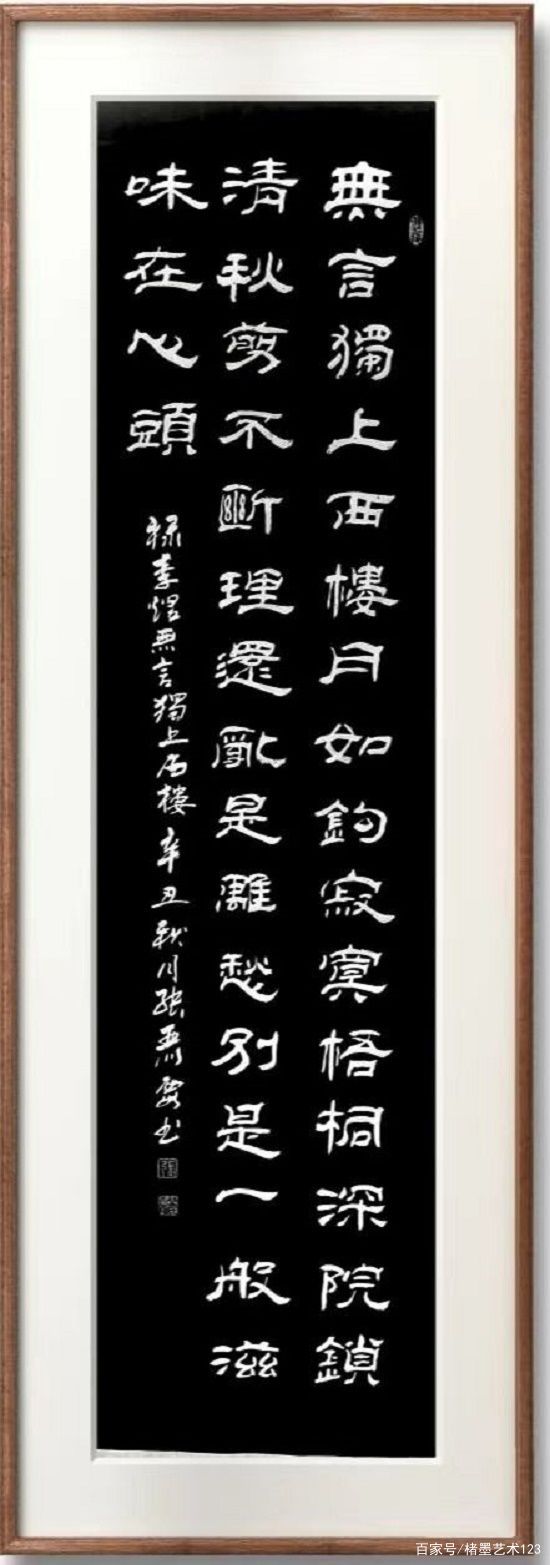 無言獨上西樓月如鈎寂寞梧桐深院鎖
清秋剪不斷理還亂是離愁別是一般滋
味在心頭
錄李煜無言獨上西樓 辛丑秋月張
書
百家号/楮墨艺术123